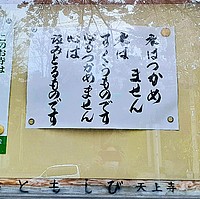 水はつかめ
ません
水は
すくうものです
心もつかめません
心は
汲みとるものです
このお寺は
ともしび 天上寺